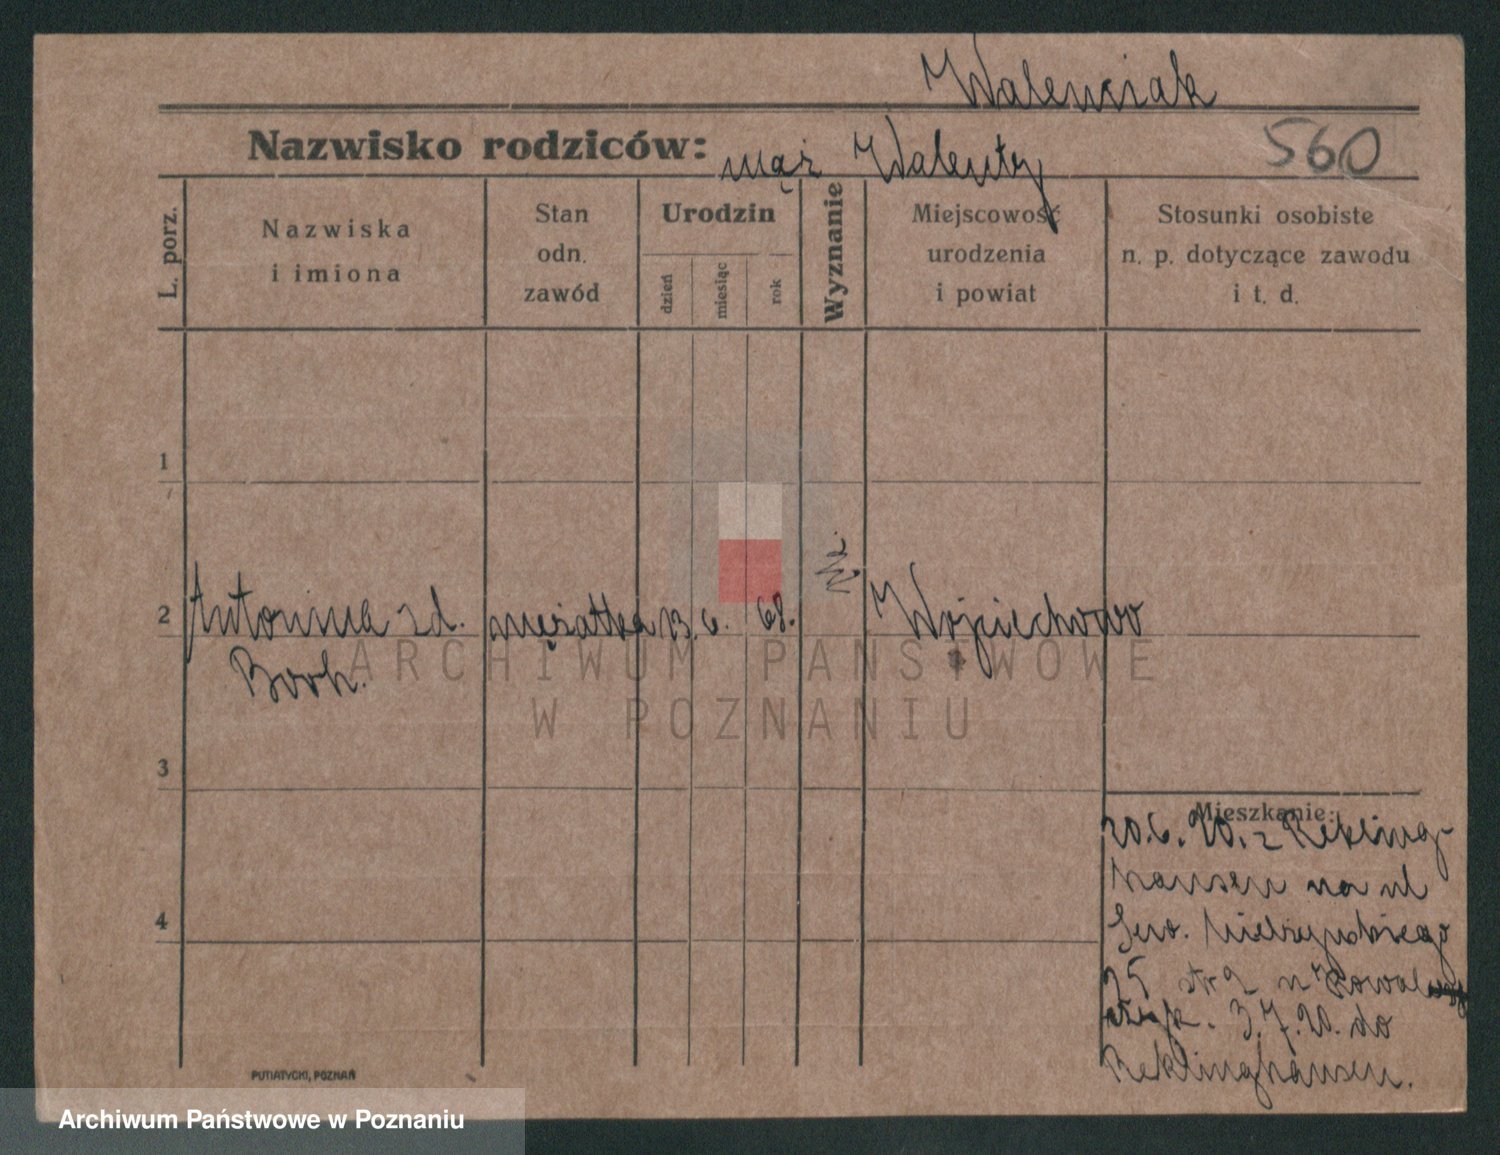 Walenciak
Nazwisko rodziców: mąż Walenty
560
L. porz.
Nazwiska
i imiona
Stan
odn.
zawód
Urodzin
dzień
miesiąc
rok
Wyznanie
Miejscowość
urodzenia
i powiat
Stosunki osobiste
n. p. dotyczące zawodu
i t. d.
1
2 Antonina zd. mężatka 13. 6. 68. Wojciechowo
3
Mieszkanie:
20.6.20. z Rekling-
hausen na ul
Sew. Mielżyńskiego
4
25 str 2 u Kowal
3.7.20. do
Reklinghausen.
PUTIATYCKI, POZNAŃ
ARCHIWUM PAŃSTWOWE
W POZNANIU
Archiwum Państwowe w Poznaniu